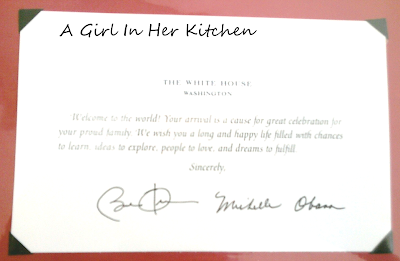 A Girl In Her Kitchen
THE WHITE HOUSE
WASHINGTON
Welcome to the world! Your arrival is a cause for great celebration for
your proud family. We wish you a long and happy life filled with chances
to learn, ideas to explore, people to love, and dreams to fulfill.
Sincerely,
Michelle Obama